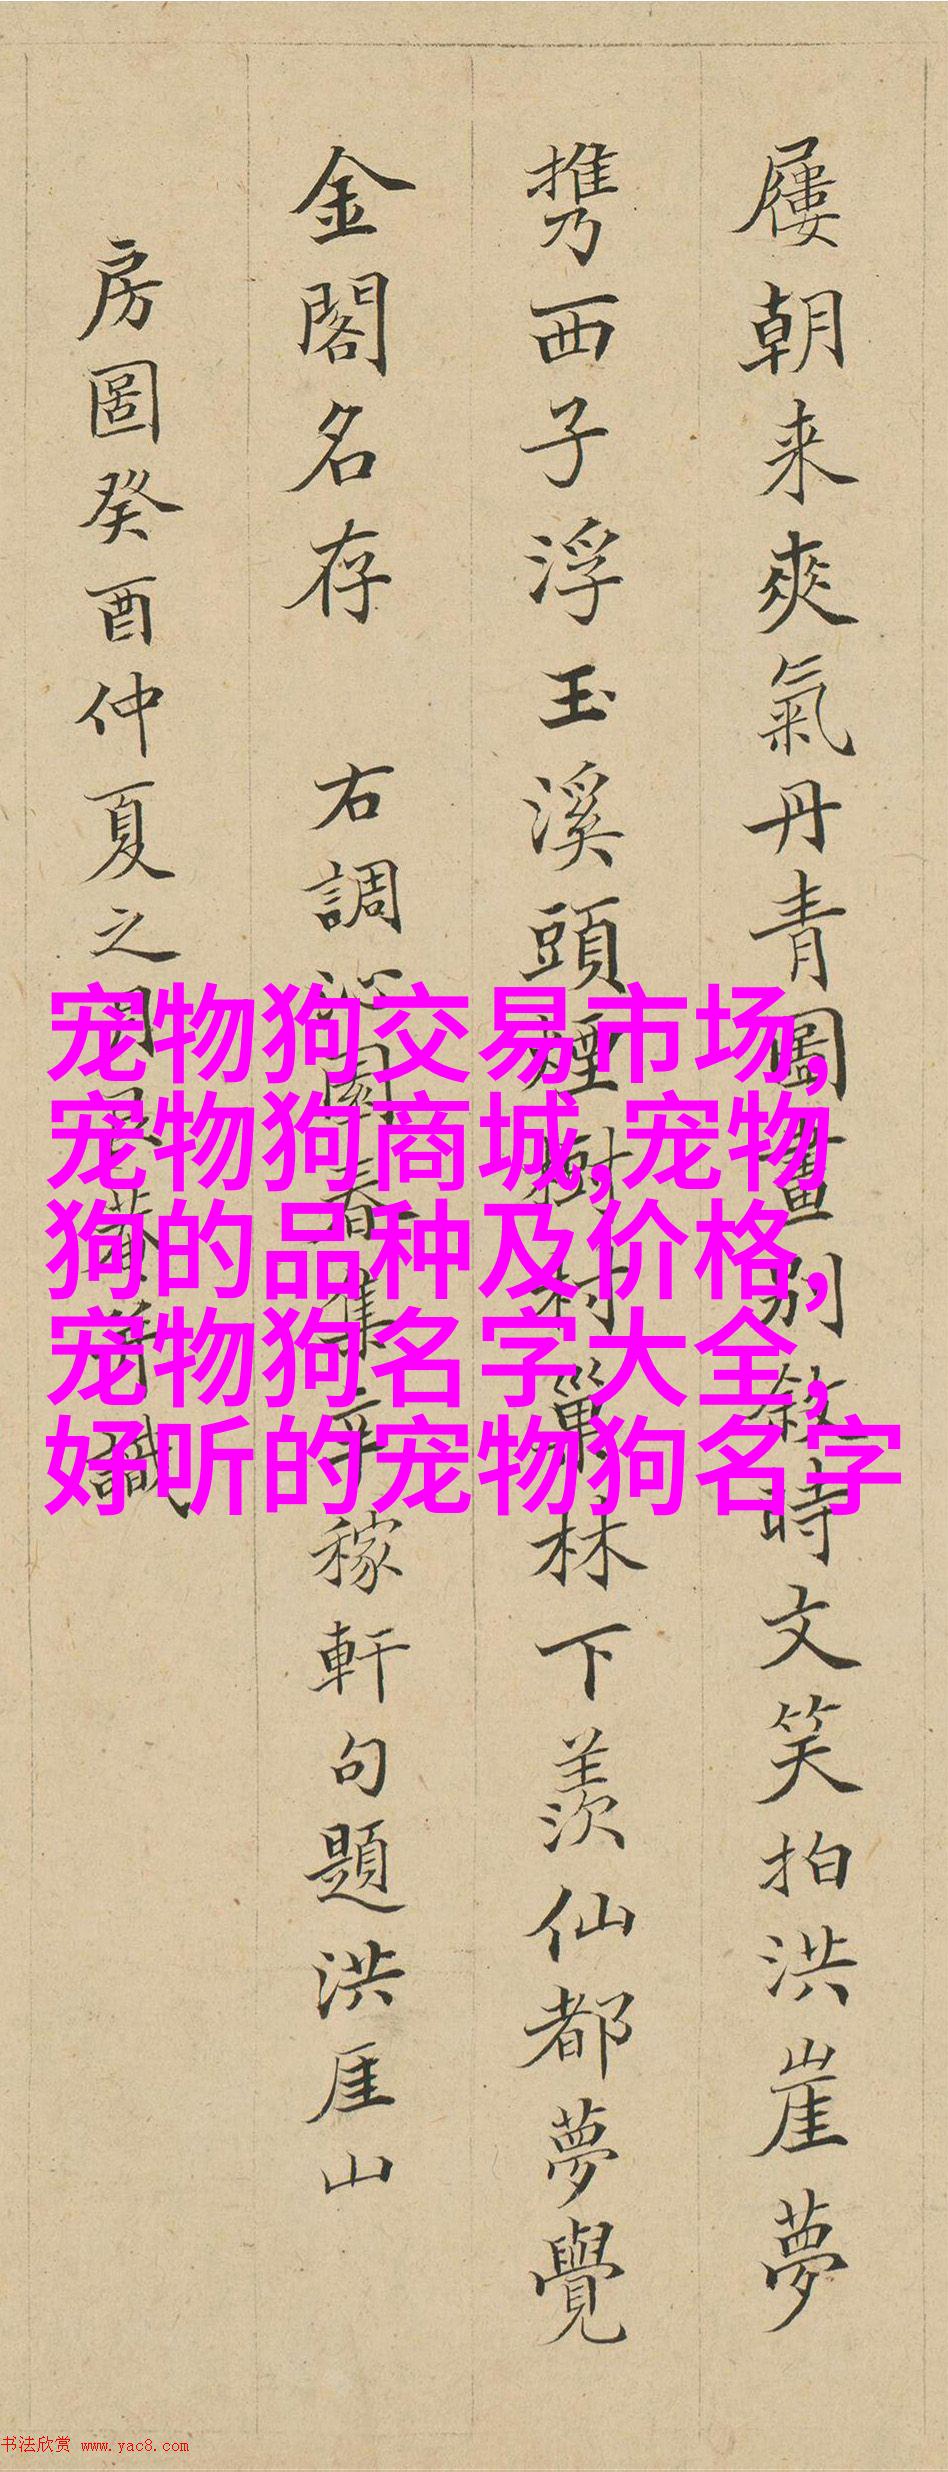 屨朝来爽氣丹青圖畫別敘時文笑拍洪崖夢
携西子浮玉溪頭煙樹村巢林下羨仙都夢覺
金閣名存 右調沁園春集辛稼軒句題洪厓山
房圖癸酉仲夏之月
識
宠物狗交易市场,
宠物狗商城,宠物
狗的品种及价格,
宠物狗名字大全,
好听的宠物狗名字
书法欣赏 www.yac8.com